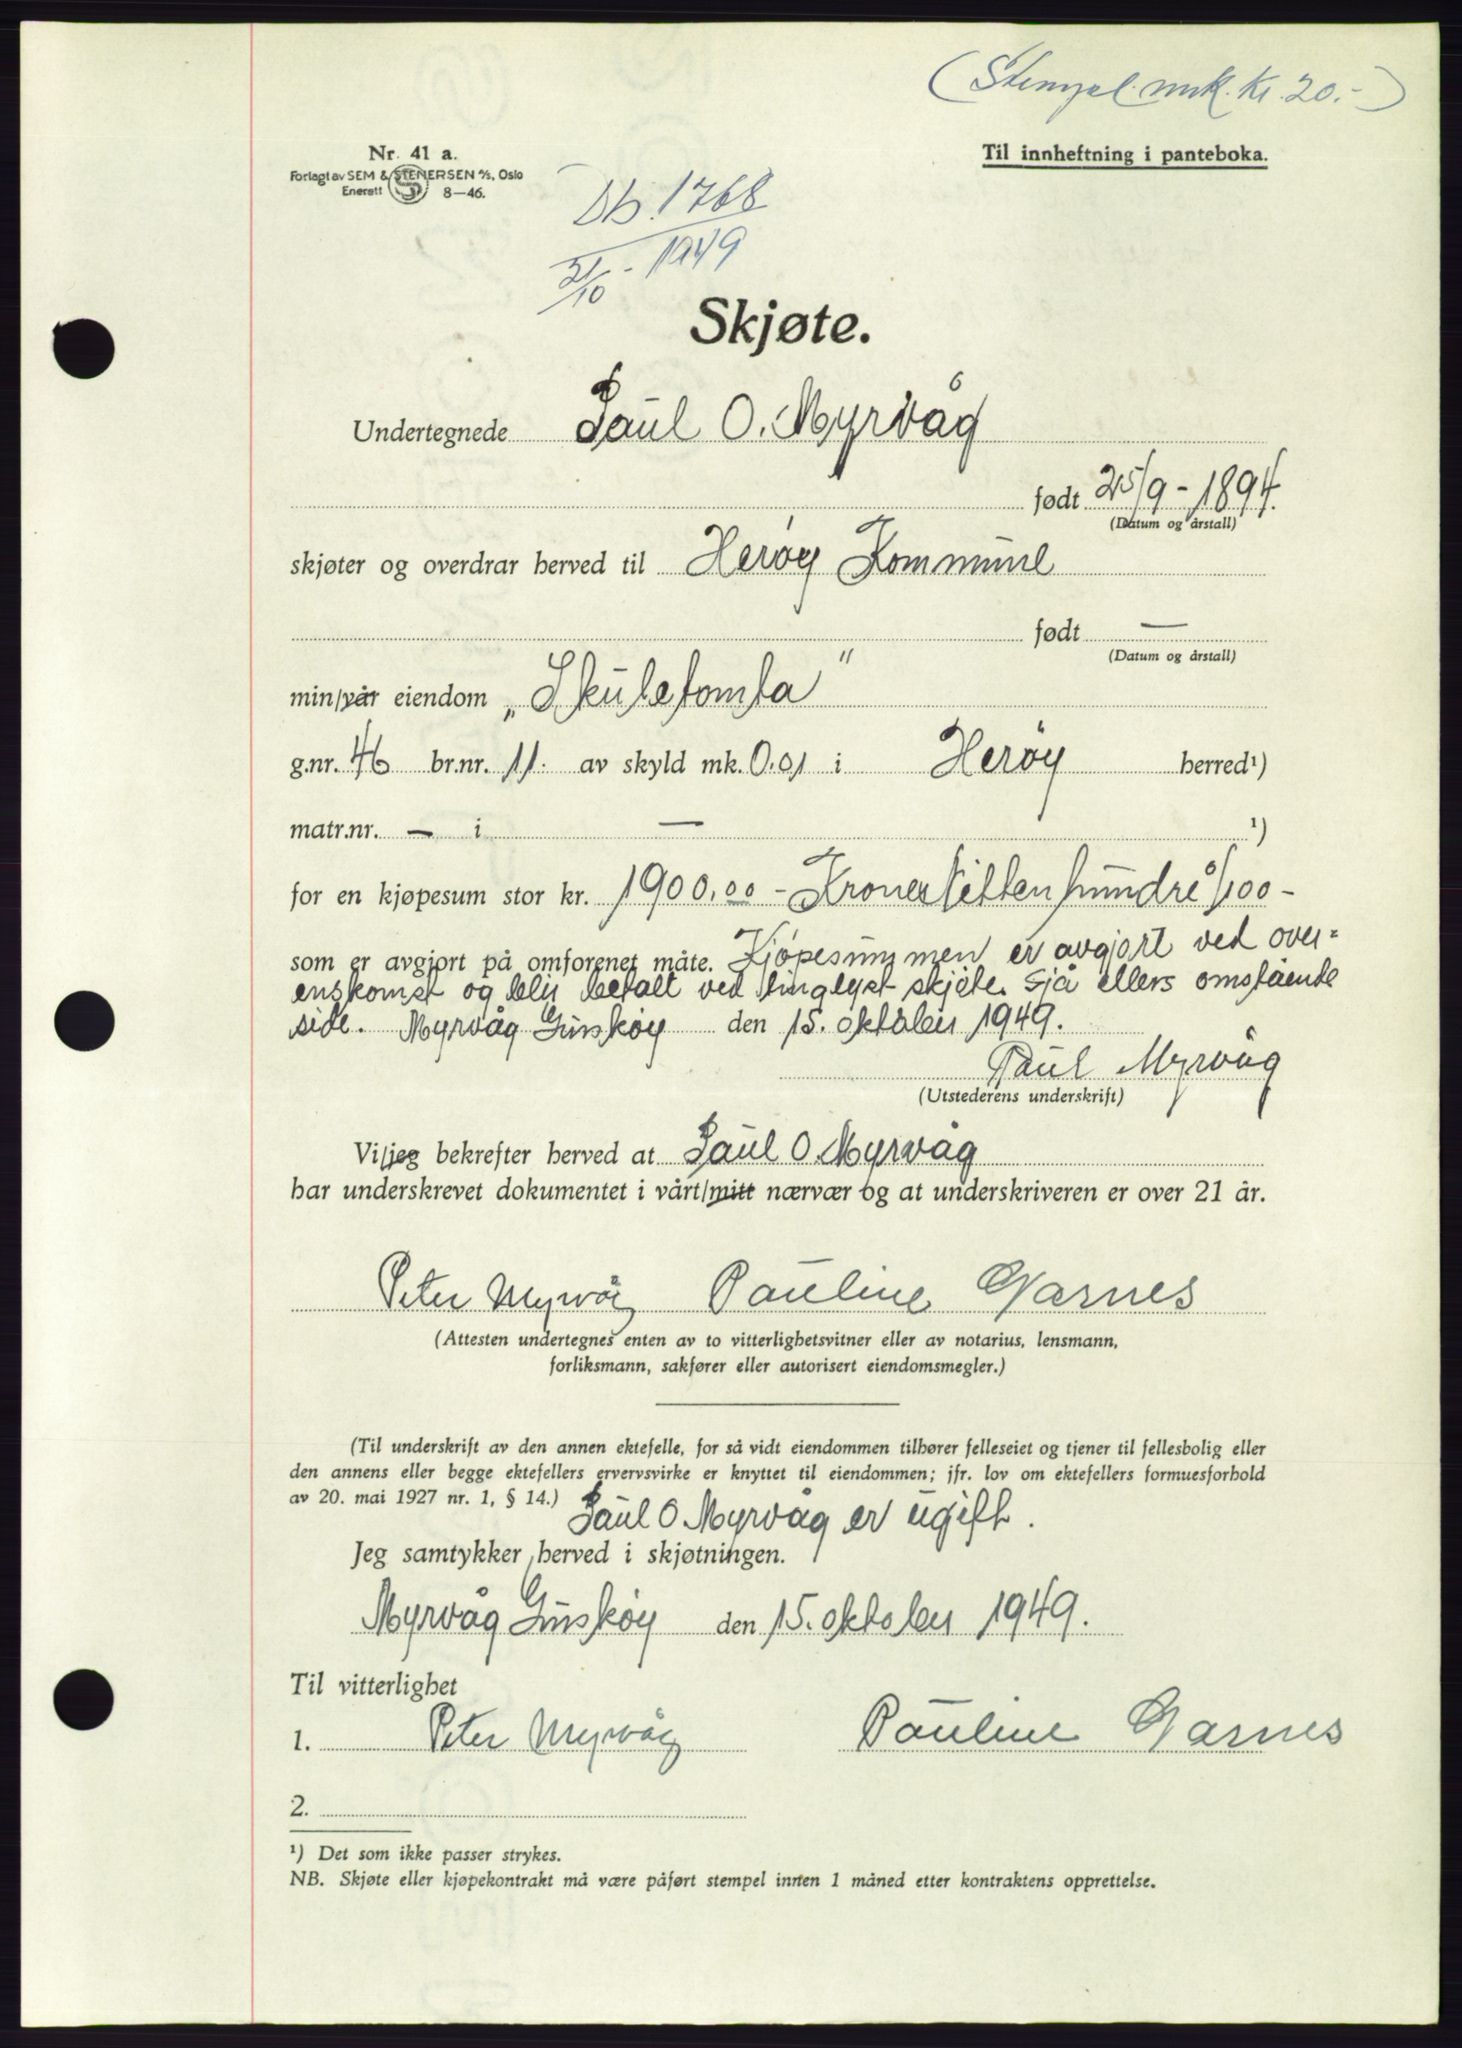 (Stempel.mrk. kr. 20.-)
Nr. 41 a.
Til innheftning i panteboka.
Forlagt av SEM & STENERSEN A/S, Oslo
Enerett 8—46.
Db. 1768
31/10 - 1949
Skjøte.
Undertegnede Paul O. Myrvåg
født 25/9 - 1894.
(Datum og årstall)
skjøter og overdrar herved til Herøy Kommune
født —
(Datum og årstall)
min/vår eiendom „Skuletomta"
g.nr. 46 br.nr. 11. av skyld mk. 0.01 i Herøy herred¹)
matr.nr. — i — ¹)
for en kjøpesum stor kr. 1900,00 - Kroner Nitten hundre 0/100 -
som er avgjort på omforenet måte. Kjøpesummen er avgjort ved over=
enskomst og bli betalt ved tinglyst skjøte. Sjå ellers omstående
side. Myrvåg Gurskøy den 15. oktober 1949.
Paul Myrvåg
(Utstederens underskrift)
Vi/jeg bekrefter herved at Paul O. Myrvåg
har underskrevet dokumentet i vårt/mitt nærvær og at underskriveren er over 21 år.
Peter Myrvåg Pauline Garnes
(Attesten undertegnes enten av to vitterlighetsvitner eller av notarius, lensmann,
forliksmann, sakfører eller autorisert eiendomsmegler.)
(Til underskrift av den annen ektefelle, for så vidt eiendommen tilhører felleseiet og tjener til fellesbolig eller
den annens eller begge ektefellers ervervsvirke er knyttet til eiendommen; jfr. lov om ektefellers formuesforhold
av 20. mai 1927 nr. 1, § 14.) Paul O Myrvåg er ugift.
Jeg samtykker herved i skjøtningen.
Myrvåg Gurskøy den 15. oktober 1949.
Til vitterlighet
1. Peter Myrvåg Pauline Garnes
2.
¹) Det som ikke passer strykes.
NB. Skjøte eller kjøpekontrakt må være påført stempel innen 1 måned etter kontraktens opprettelse.